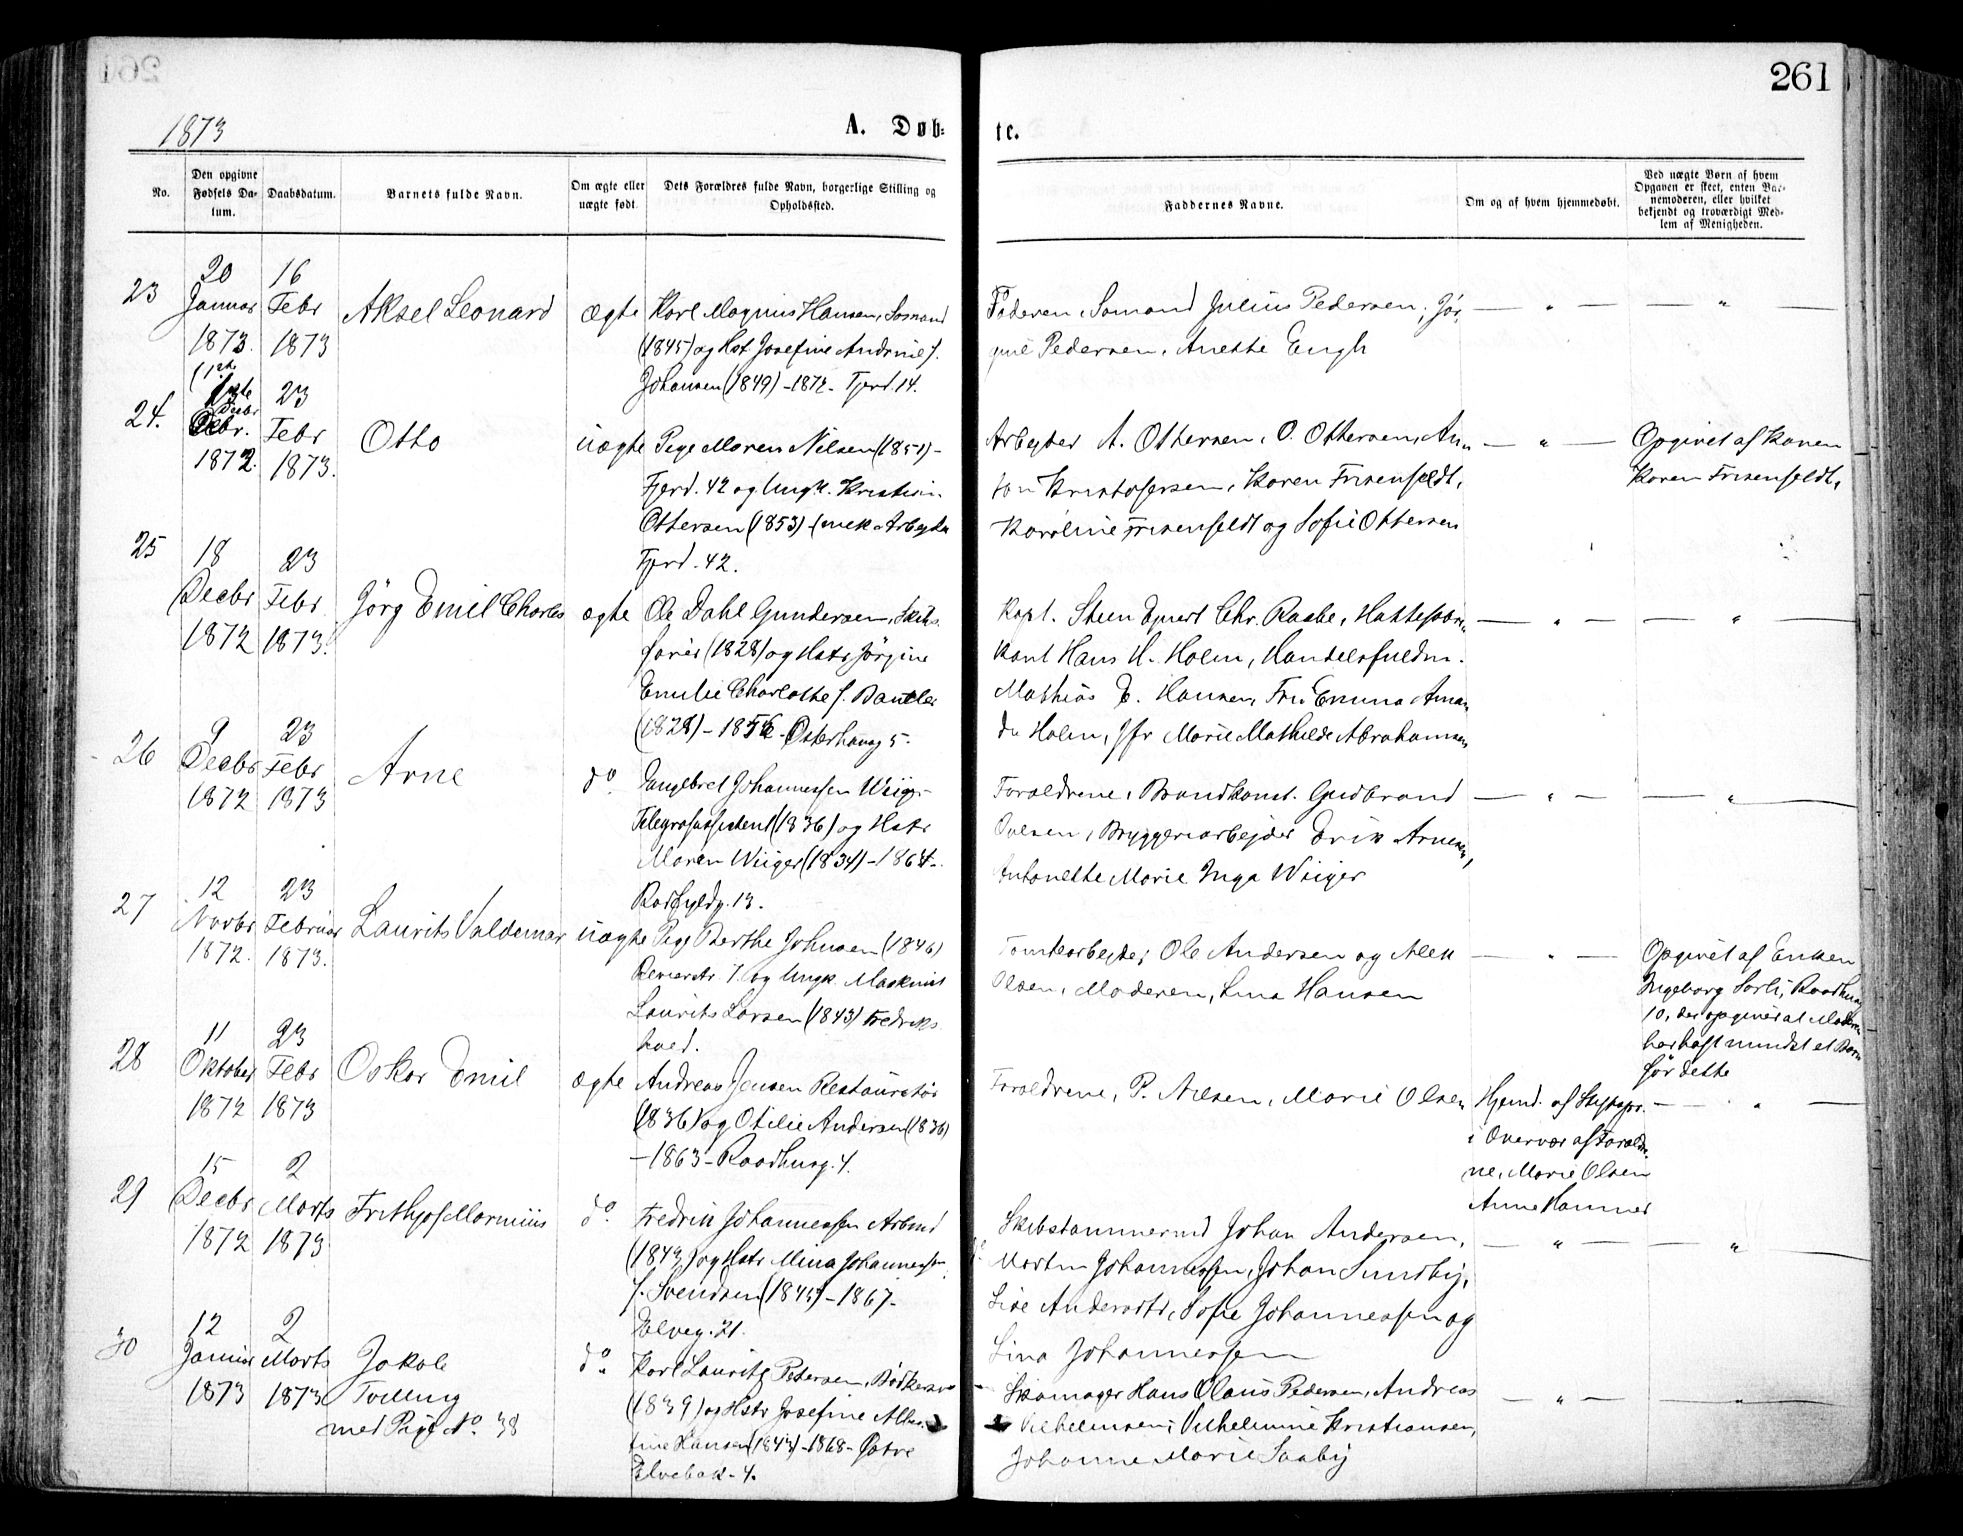 261
1873
A. Døb-
te.
No.
Den opgivne Fødsels Da-tum.
Daabsdatum.
Barnets fulde Navn.
Om ægte eller uægte født.
Dets Forældres fulde Navn, borgerlige Stilling og Opholdssted.
Faddernes Navne.
Om og af hvem hjemmedøbt.
Ved uægte Børn af hvem Opgaven er skeet, enten Bar-nemoderen, eller hvilket bekjendt og troværdigt Med-lem af Menigheden.
23
20 Januar 1873.
16 Febr 1873
Aksel Leonard
ægte
Karl Magnus Hansen, Sømand
(1845) og Hst. Josefine Andrine f.
Johansen (1849) - 1872 - Fjerd. 14.
Faderen, Sømand Julius Pedersen, Jør-
gine Pedersen, Anette Engh
24.
Decbr. 1872.
23 Febr 1873.
Otto
uægte
Pige Maren Nilsen (1851) -
Fjerd. 42 og Ungk. Kristian
Ottersen (1853) - mek. Arbejder
Fjerd. 42.
Arbejder A. Ottersen, O. Ottersen, An-
ton Kristofersen, Karen Frisenfeldt,
Karoline Frisenfeldt og Sofie Ottersen
Opgivet af Konen
Karen Frisenfeldt.
25
18 Decbr 1872
23 Febr 1873.
Jörg Emil Charles
ægte
Ole Dahl Gundersen, Skibs-
fører (1828) og Hstr Jørgine
Emilie Charlotte f.
(1828) - 1856 - Østerhaug 5.
Kapt. Steen Ejnert Chr. Raabe,
Hans H. Holm, Handelsfuldm.
Mathias E. Hansen, Fru Emma Aman-
da Holm, Jfr Marie Mathilde Abrahamsen
26
9 Decbr 1872
23 Febr 1873
Arne
do.
Engebret Johannessen Wiiger
Telegrafassistent (1836) og Hstr
Maren Wiiger (1834) - 1864 -
13.
Forældrene, Brandkonst. Gudbrand
Olsen, Bryggeriarbejder Erik Arnesen,
Antonette Marie Inga Wiiger
27
12 Novbr 1872.
23 Februar 1873.
Laurits Valdemar
uægte
Pige Berthe Johnsen (1846)
Revierstr 7. og Ungk. Maskinist
Laurits Larsen (1843) Fredriks-
hald.
Tomtearbejder Ole Andersen og Alek
Olsen, Moderen, Lina Hansen
Opgivet af Enken
Ingeborg Sorli, Raadhusg
10, der opgiver at Moderen
har haft mindst et Barn
før dette
28
11 Oktober 1872
23 Febr 1873
Oskar Emil
ægte
Andreas Jensen Restauratør
(1836) og Otilie Andersen (1836)
- 1863 - Raadhusg. 4.
Forældrene, P. Nilsen, Marie Olsen
Hjemd. af Stiftspr.
i Overvær af Foreldre-
ne, Marie Olsen
Anne Hammer
29
15 Decbr 1872
2 Marts 1873
Frithjof Marinius
do.
Fredrik Johannessen Arbmd
(1843) og Hstr Mina Johannessen
f. Svendsen (1845) - 1867 -
Elveg. 21.
Skibstømmermd Johan Andersen,
Martin Johannessen, Johan Sundby,
Lise Andersdtr, Sofie Johannessen og
Lina Johannessen
30
12 Januar 1873
2 Marts 1873
Jakob
Tvilling
med Pige No. 38
do.
Karl Lauritz Petersen, Bødkersv
(1839) og Hstr Josefine Alber-
tine Hansen (1843) - 1868 - Østre
Elvebak - 4.
Skomager Hans Olaus Pedersen, Andreas
Vilhelmsen, Vilhelmine Kristiansen,
Johanne Marie Saaby